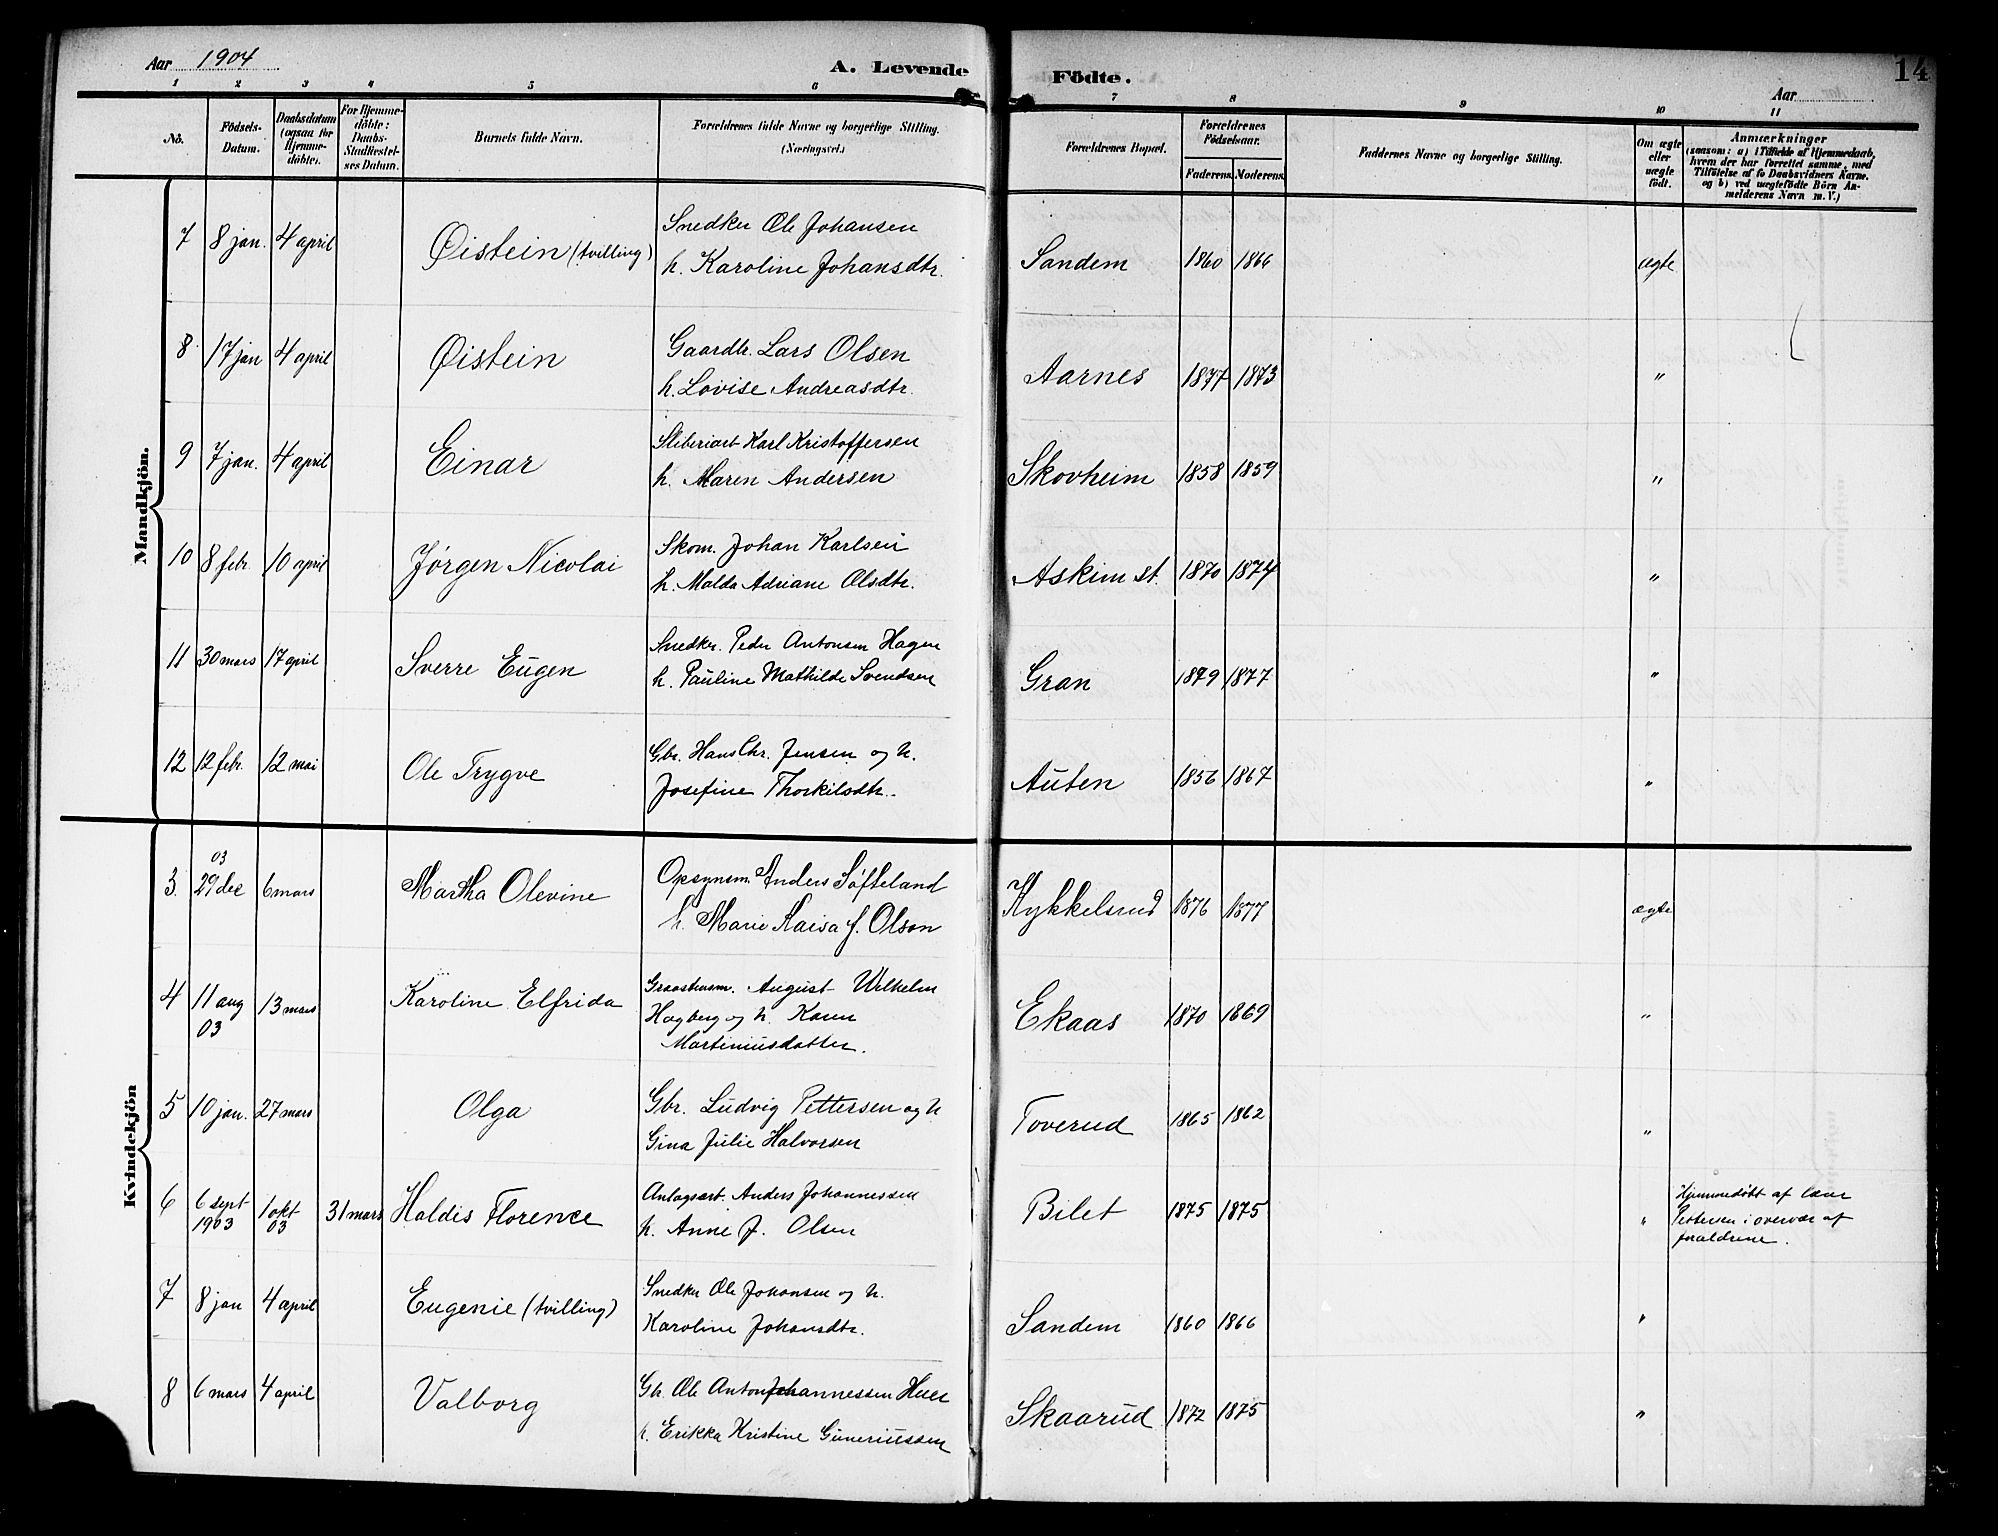 Aar 1904 A. Levende Födte. Aar 14
1 2 3 4 5 6 7 8 9 10 11
No. Födsels-Datum. Daabsdatum (ogsaa for Hjemmedöbte). For Hjemmedöbte: Daabs-Stadfæstelses Datum. Barnets fulde Navn. Forældrenes fulde Navne og borgerlige Stilling. (Næringsvei.) Forældrenes Bopæl. Forældrenes Födselsaar. Faderens. Moderens. Faddernes Navne og borgerlige Stilling. Om ægte eller uægte födt. Anmærkninger (saasom: a) i Tilfælde af Hjemmedaab, hvem der har forrettet samme, med Tilföielse af to Daabsvidners Navne. og b) ved uægtefödte Börn Anmelderens Navn m. V.)
Mandkjön.
7 8 jan. 4 april Øistein (tvilling) Snedker Ole Johansen Sandem 1860 1866 ægte
h. Karoline Johansdtr.
8 17 jan 4 april Øistein Gaardbr. Lars Olsen Aarnes 1877 1873 "
h. Lovise Andreasdtr.
9 7 jan. 4 april Einar Sliberiarb Karl Kristoffersen Skovheim 1858 1859 "
h. Maren Andersen
10 8 febr. 10 april Jørgen Nicolai Skom. Johan Karlsen Askim st. 1870 1874 "
h. Malda Adriane Olsdtr.
11 30 mars 17 april Sverre Eugen Snedkr. Peder Antonsen Hagen Gran 1879 1877 "
h. Pauline Mathilde Svendsen
12 12 febr. 12 mai Ole Trygve Gbr. Hans Chr. Jensen og h. Auten 1856 1867 "
Josefine Thorkilsdtr.
Kvindekjön
03
3. 29 dec 6 mars Martha Olevine Opsynsm. Anders Søfteland Kykkelsrud 1876 1877 ægte
h. Marie Kaisa f. Olson
4 11 aug 13 mars Karoline Elfrida Graastensm. August Wilhelm Ekaas 1870 1869 "
03 Hagberg og h. Karen
Martiniusdatter.
5 10 jan. 27 mars Olga Gbr. Ludvig Pettersen og h Toverud 1865 1862 "
Gina Julie Halvorsen
6 6 sept 1 okt 31 mars Haldis Florence Anlagsarb. Anders Johannessen Bilet 1875 1875 " Hjemmedøbt af
1903 03 h. Anne J. Olsen Pettersen i overvær af
forældrene.
7 8 jan 4 april Eugenie (tvilling) Snedker Ole Johansen og h. Sandem 1860 1866 "
Karoline Johansdtr.
8 6 mars 4 april Valborg Gb. Ole Anton Johannessen Skaarud 1872 1875 "
h. Erikka Kristine Guneriussen